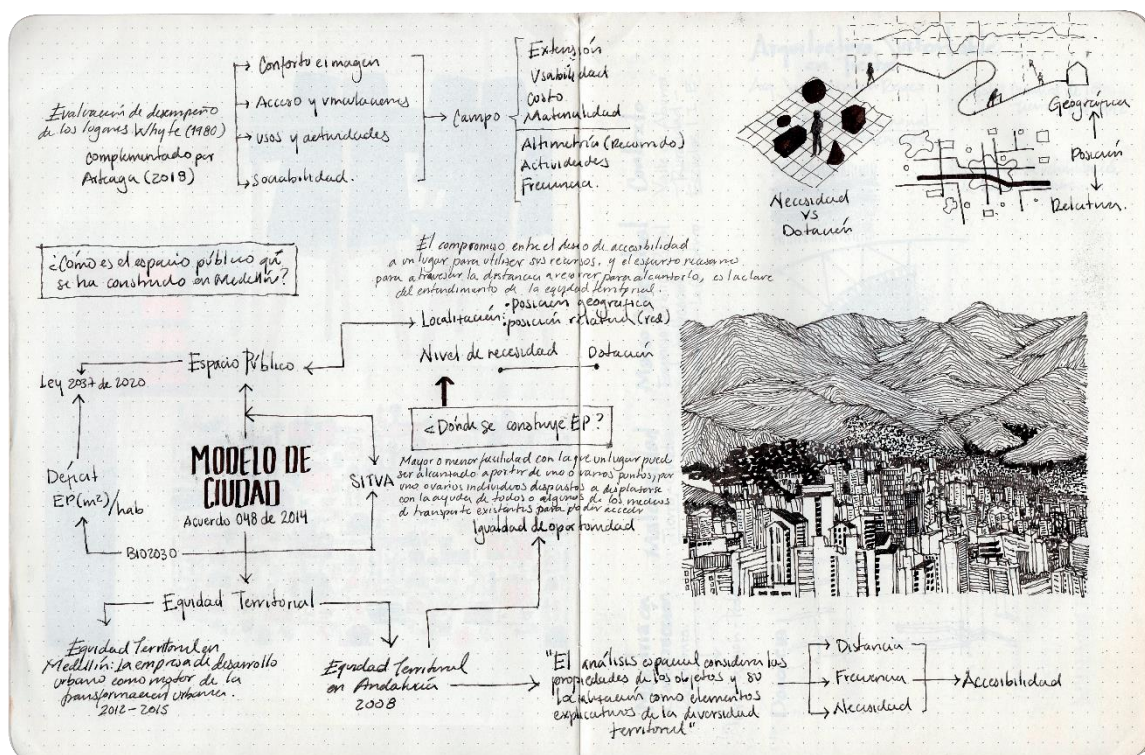 Evaluación de desempeño
de los lugares Whyte (1980)
complementado por
Arteaga (2018)
Conforto e imagen
Acceso y vinculaciones
usos y actividades
sociabilidad.
Campo
Extensión
Usabilidad
Costo
Materialidad
Altimetría (Recorrido)
Actividades
Frecuencia.
Necesidad
vs
Dotación
Geográfica
Posición
Relativa.
¿Cómo es el espacio público qu
se ha construido en Medellín?
El compromiso entre el deseo de accesibilidad
a un lugar para utilizar sus recursos, y el esfuerzo necesario
para atravesar la distancia a recorrer para alcanzarlo, es la clave
del entendimiento de la equidad territorial.
Localización: • Posición geográfica
• posición relativa (red)
Nivel de necesidad Dotación
Espacio Público
Ley 2037 de 2020
¿Dónde se construye EP?
Mayor o menor facilidad con la que un lugar pued
ser alcanzado a partir de uno o varios puntos, por
uno o varios individuos dispuestos a desplazarse
con la ayuda de todos o algunos de los medios
de transporte existentes para poder acceder
Igualdad de oportunidad
MODELO DE
CIUDAD
Acuerdo 048 de 2014
SITVA
Déficit
EP(m²)/hab
BIO2030
Equidad Territorial
Equidad Territorial en
Medellín: La empresa de desarrollo
urbano como motor de la
transformación urbana.
2012-2015
Equidad Territorial
en Andalucía
2008
"El análisis espacial considera las
propiedades de los objetos y su
localización como elementos
explicativos de la diversidad
territorial"
Distancia
Frecuencia
Necesidad
Accesibilidad